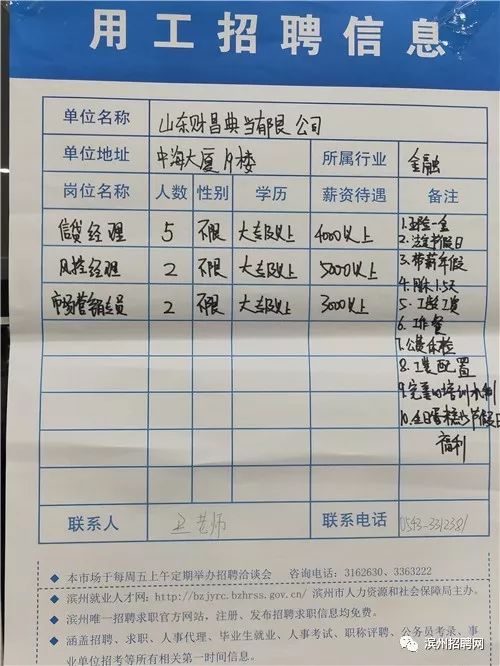 用工招聘信息
单位名称 山东财昌典当有限公司
单位地址 中海大厦19楼 所属行业 金融
岗位名称 人数 性别 学历 薪资待遇 备注
信贷经理 5 不限 大专及以上 4000以上 1.五险一金
2.法定节假日
风控经理 2 不限 大专及以上 5000以上 3.带薪年假
4.周休1.5天
市场营销专员 2 不限 大专及以上 3000以上 5.工龄工资
6.工作餐
7.公费体检
8.工装配置
9.完善的培训机制
10.生日蛋糕
节假日
福利
联系人 老师 联系电话 0543-3312381
◆ 本市场于每周五上午定期举办招聘洽谈会 咨询电话:3162630、3363222
◆ 滨州就业人才网:http://bzjyrc.bzhrss.gov.cn/ 滨州市人力资源和社会保障局主办。
◆ 滨州唯一招聘求职官方网站，注册、发布招聘求职信息均免费。
◆ 涵盖招聘、求职、人事代理、毕业生就业、人事考试、职称评聘、公务员考录、事
业单位招考等所有相关第一时间信息。
滨州招聘网